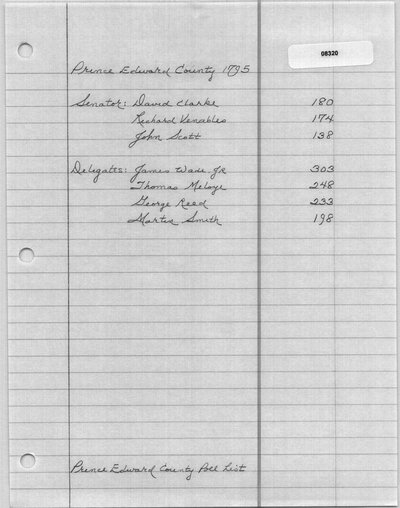 08320
Prince Edward County 1795
Senator: David Clarke 180
Richard Venables 174
John Scott 138
Delegates: James Wade Jr 303
Thomas Meloye 248
George Reed 233
Martin Smith 198
Prince Edward County Poll List